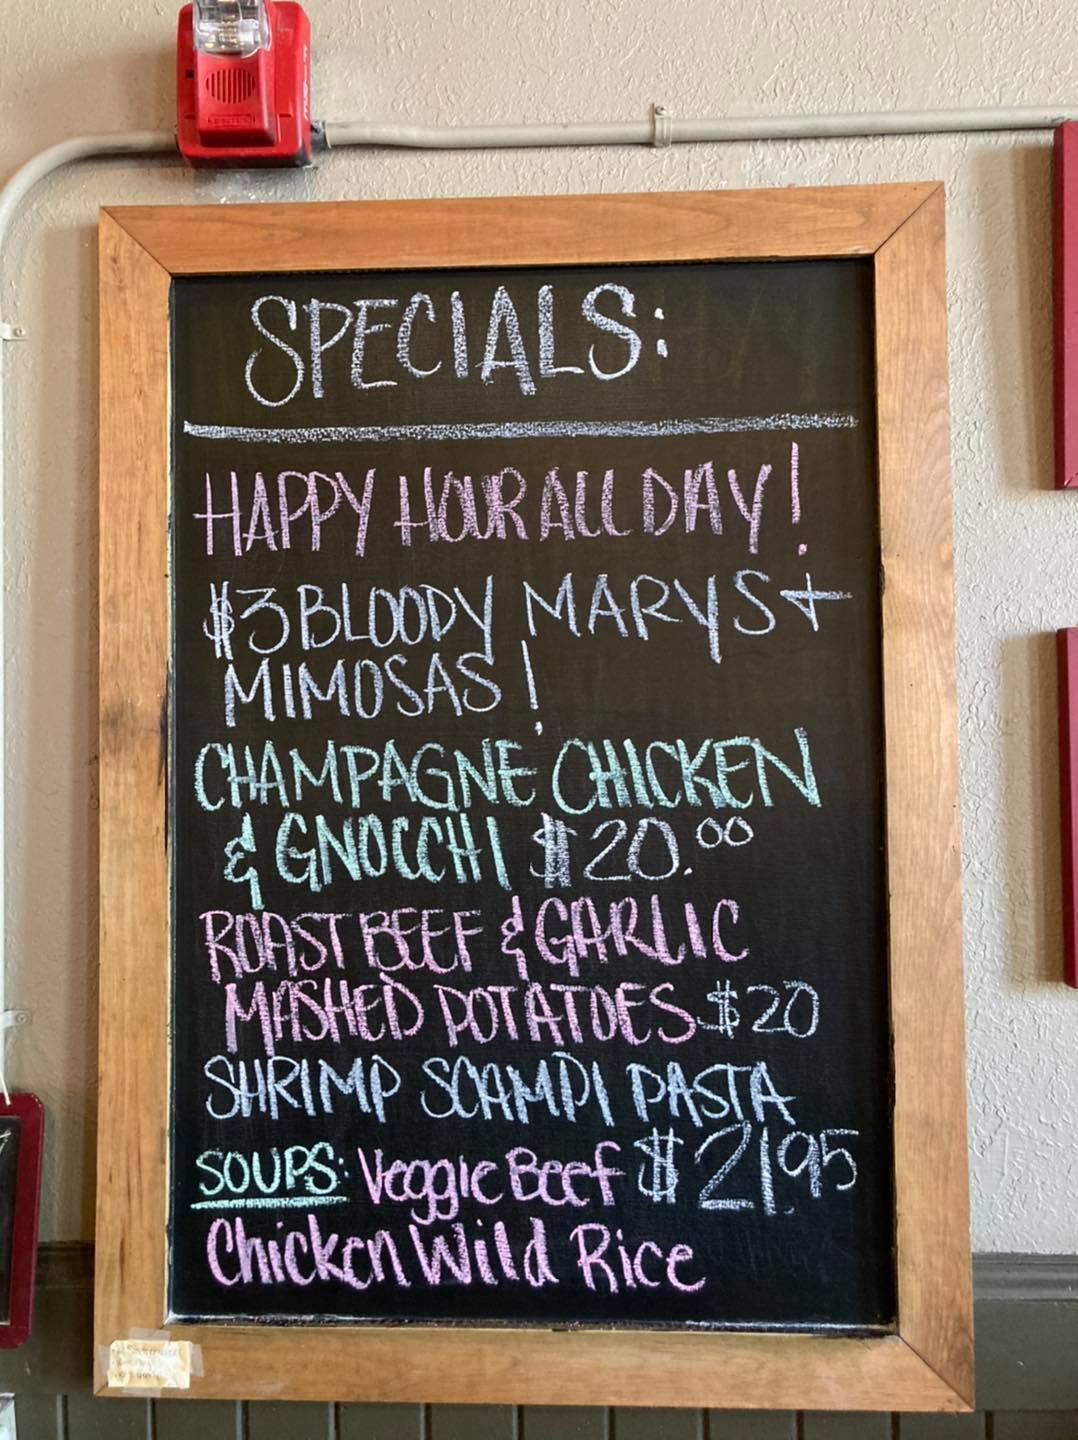 SPECIALS:
HAPPY HOUR ALL DAY!
$3 BLOODY MARYS +
MIMOSAS!
CHAMPAGNE CHICKEN
& GNOCCHI $20.00
ROAST BEEF & GARLIC
MASHED POTATOES $20
SHRIMP SCAMPI PASTA
$21.95
SOUPS: Veggie Beef
Chicken Wild Rice